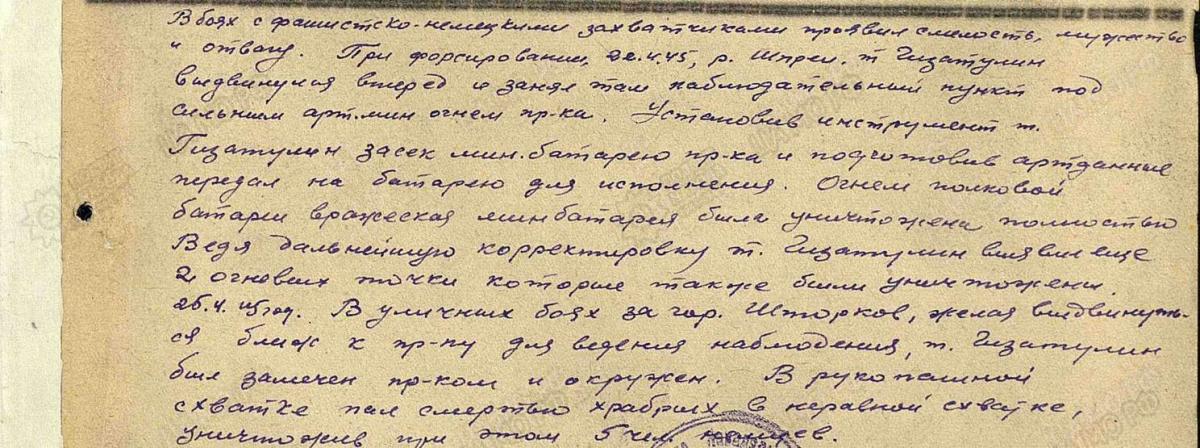 В боях с фашистско-немецкими захватчиками проявил смелость, мужество
и отвагу. При форсировании, 22.4.45, р. Шпреи. т. Гизатулин
выдвинулся вперед и занял там наблюдательный пункт под
сильным арт.мин огнем пр-ка. Установив инструмент т.
Гизатулин засек мин.батарею пр-ка и подготовив артданные
передал на батарею для исполнения. Огнем полковой
батареи вражеская минбатарея была уничтожена полностью
Ведя дальнейшую корректировку т. Гизатулин выявил еще
2 огневых точки которые также были уничтожены.
26.4.45 год. В уличных боях за гор. Шторков, желая выдвинуть-
ся ближ к пр-ку для ведения наблюдения, т. Гизатулин
был замечен пр-ком и окружен. В рукопашной
схватке пал смертью храбрых в неравной схватке,
уничтожив при этом 5 чел. немцев.